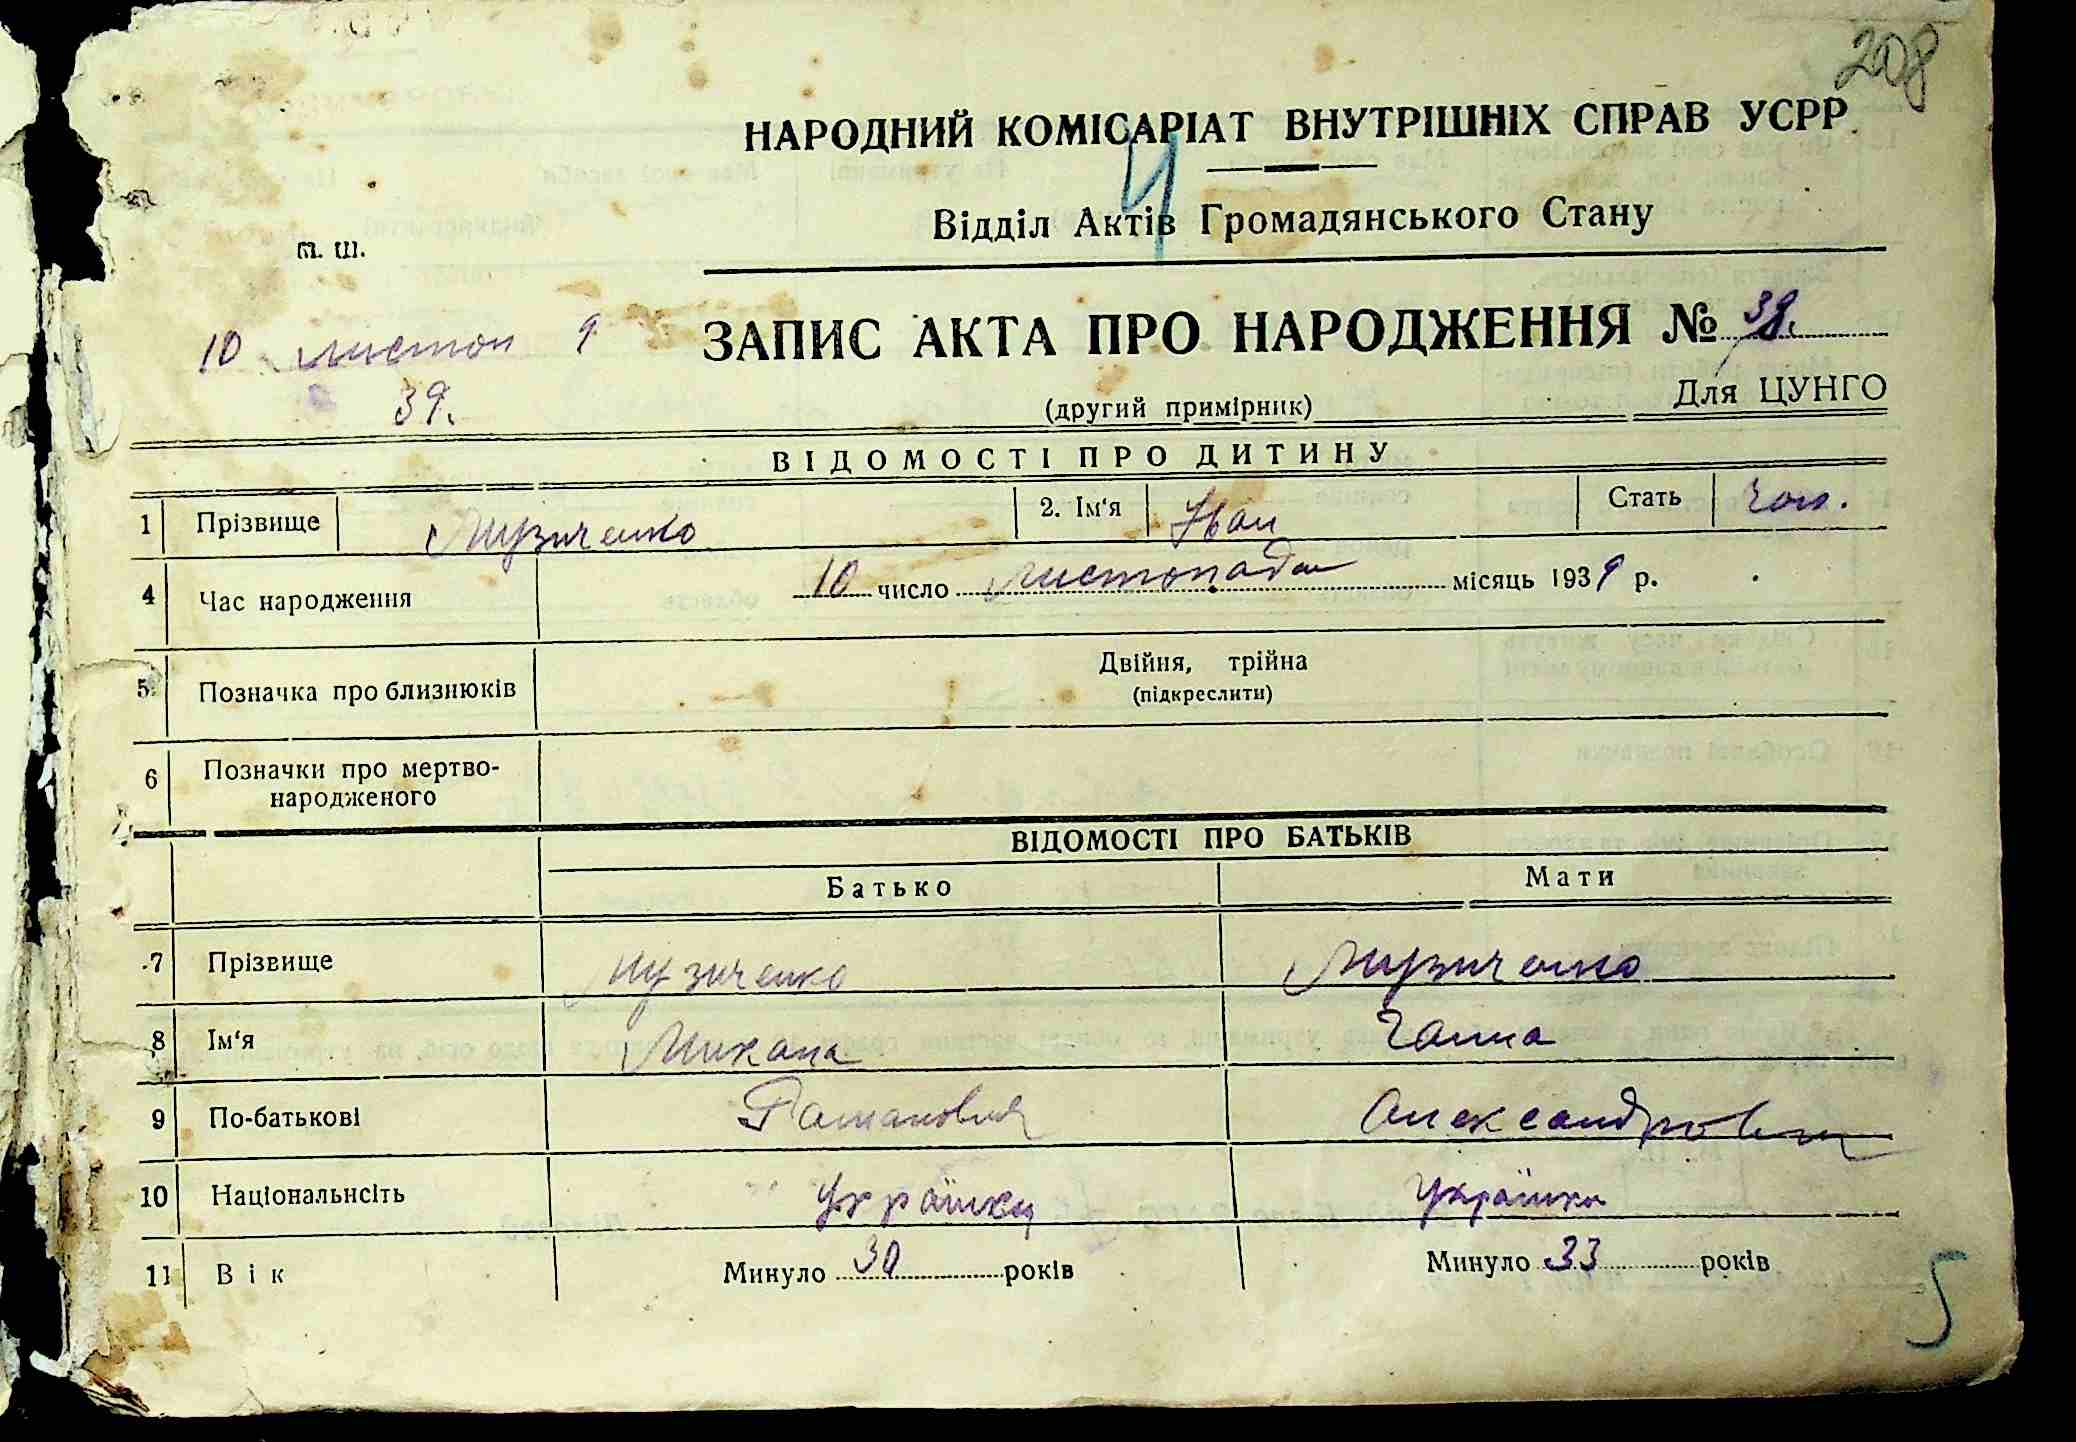 208
НАРОДНИЙ КОМІСАРІАТ ВНУТРІШНІХ СПРАВ УСРР
Відділ Актів Громадянського Стану
м. ш.
10 листоп 9
ЗАПИС АКТА ПРО НАРОДЖЕННЯ № 38.
39.
(другий примірник) Для ЦУНГО
ВІДОМОСТІ ПРО ДИТИНУ
1 Прізвище Музиченко 2. Ім'я Іван Стать чол.
4 Час народження 10 число Листопада місяць 1939 р.
5 Позначка про близнюків Двійня, трійна
(підкреслити)
6 Позначки про мертво-
народженого
ВІДОМОСТІ ПРО БАТЬКІВ
Батько Мати
7 Прізвище Музиченко Музиченко
8 Ім'я Микола Ганна
9 По-батькові Олександровна
10 Національність українец українка
11 Вік Минуло 30 років Минуло 33 років
5